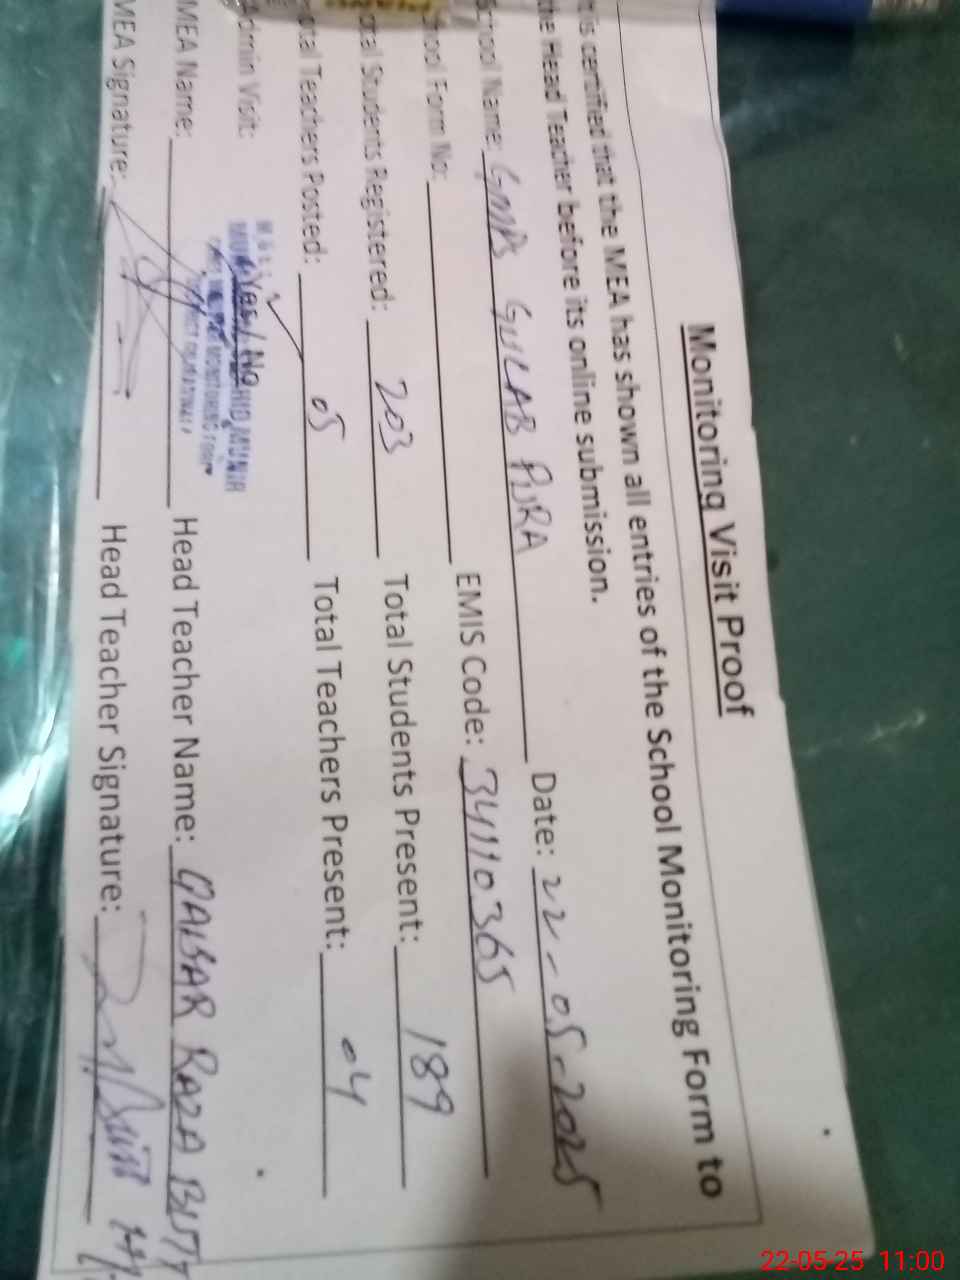 Monitoring Visit Proof
is certified that the MEA has shown all entries of the School Monitoring Form to
the Head Teacher before its online submission.
School Name: GMPS GULAB PURA Date: 22-05-2025
School Form No: EMIS Code: 34110365
otal Students Registered: 203 Total Students Present: 189
otal Teachers Posted: 05 Total Teachers Present: 04
dmin Visit: Yes / No
MEA Name: Head Teacher Name: QAISAR RAZA BUTT
MEA Signature: Head Teacher Signature:
22-05-25 11:00